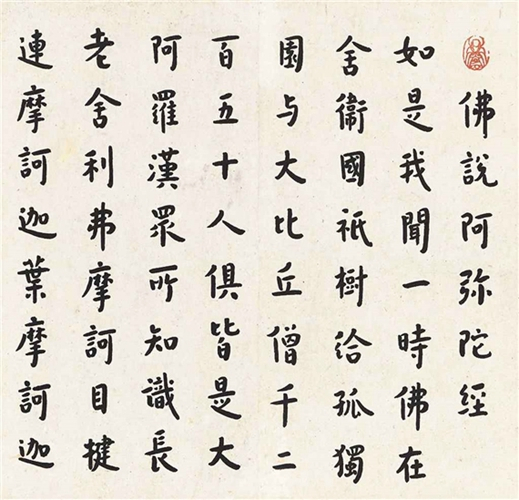 佛說阿弥陀經
如是我聞一時佛在
舍衛國祇樹给孤獨
園与大比丘僧千二
百五十人俱皆是大
阿羅漢眾所知識長
老舍利弗摩訶目揵
連摩訶迦葉摩訶迦